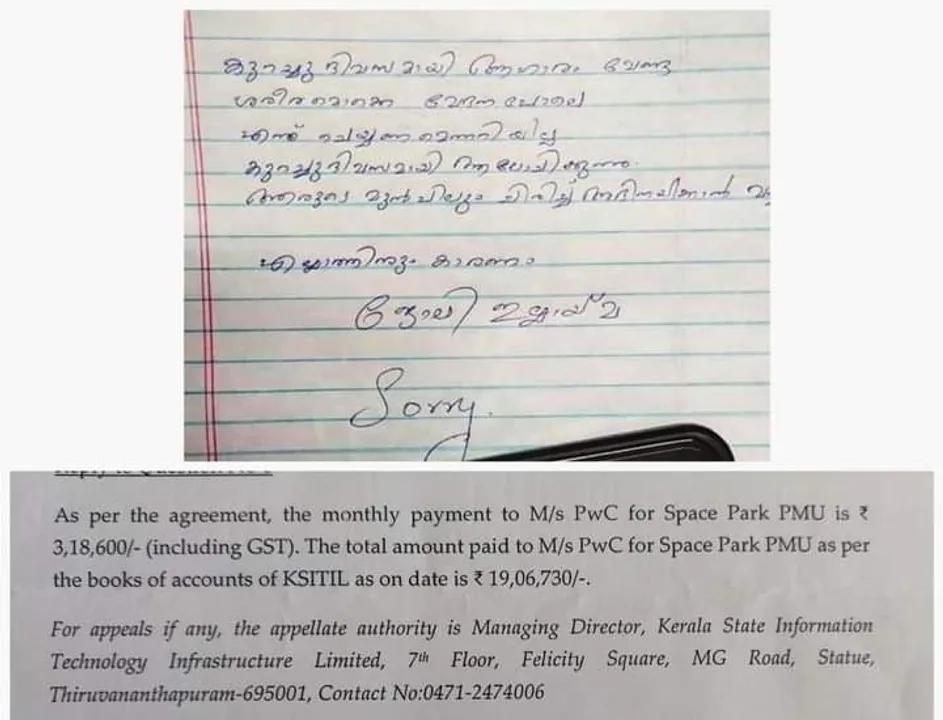 കുറച്ചു ദിവസമായി ആഹാരം വേണ്ട
ശരീരമൊക്കെ വേദന പോലെ
എന്ത് ചെയ്യണമെന്നറിയില്ല
കുറച്ചു ദിവസമായി ആലോചിക്കുന്നു.
ആരുടെ മുൻപിലും ചിരിച്ച് അഭിനയിക്കാൻ വ
എല്ലാത്തിനും കാരണം
ജോലി ഇല്ലായ്മ
Sorry.
As per the agreement, the monthly payment to M/s PwC for Space Park PMU is ₹
3,18,600/- (including GST). The total amount paid to M/s PwC for Space Park PMU as per
the books of accounts of KSITIL as on date is ₹ 19,06,730/-.
For appeals if any, the appellate authority is Managing Director, Kerala State Information
Technology Infrastructure Limited, 7th Floor, Felicity Square, MG Road, Statue,
Thiruvananthapuram-695001, Contact No:0471-2474006